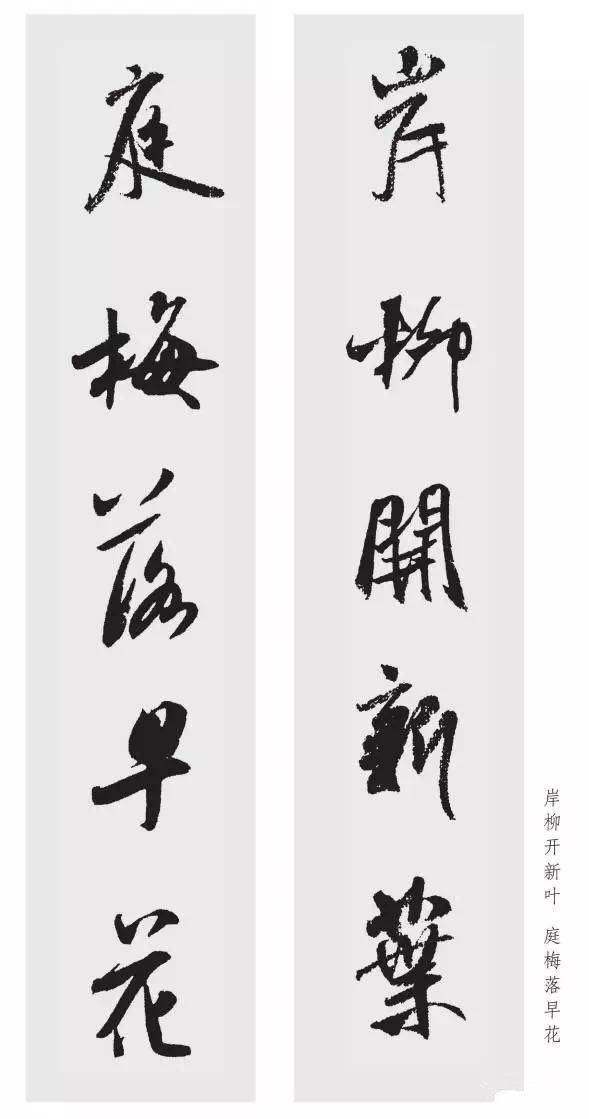 岸柳開新葉
庭梅落早花
岸柳开新叶 庭梅落早花